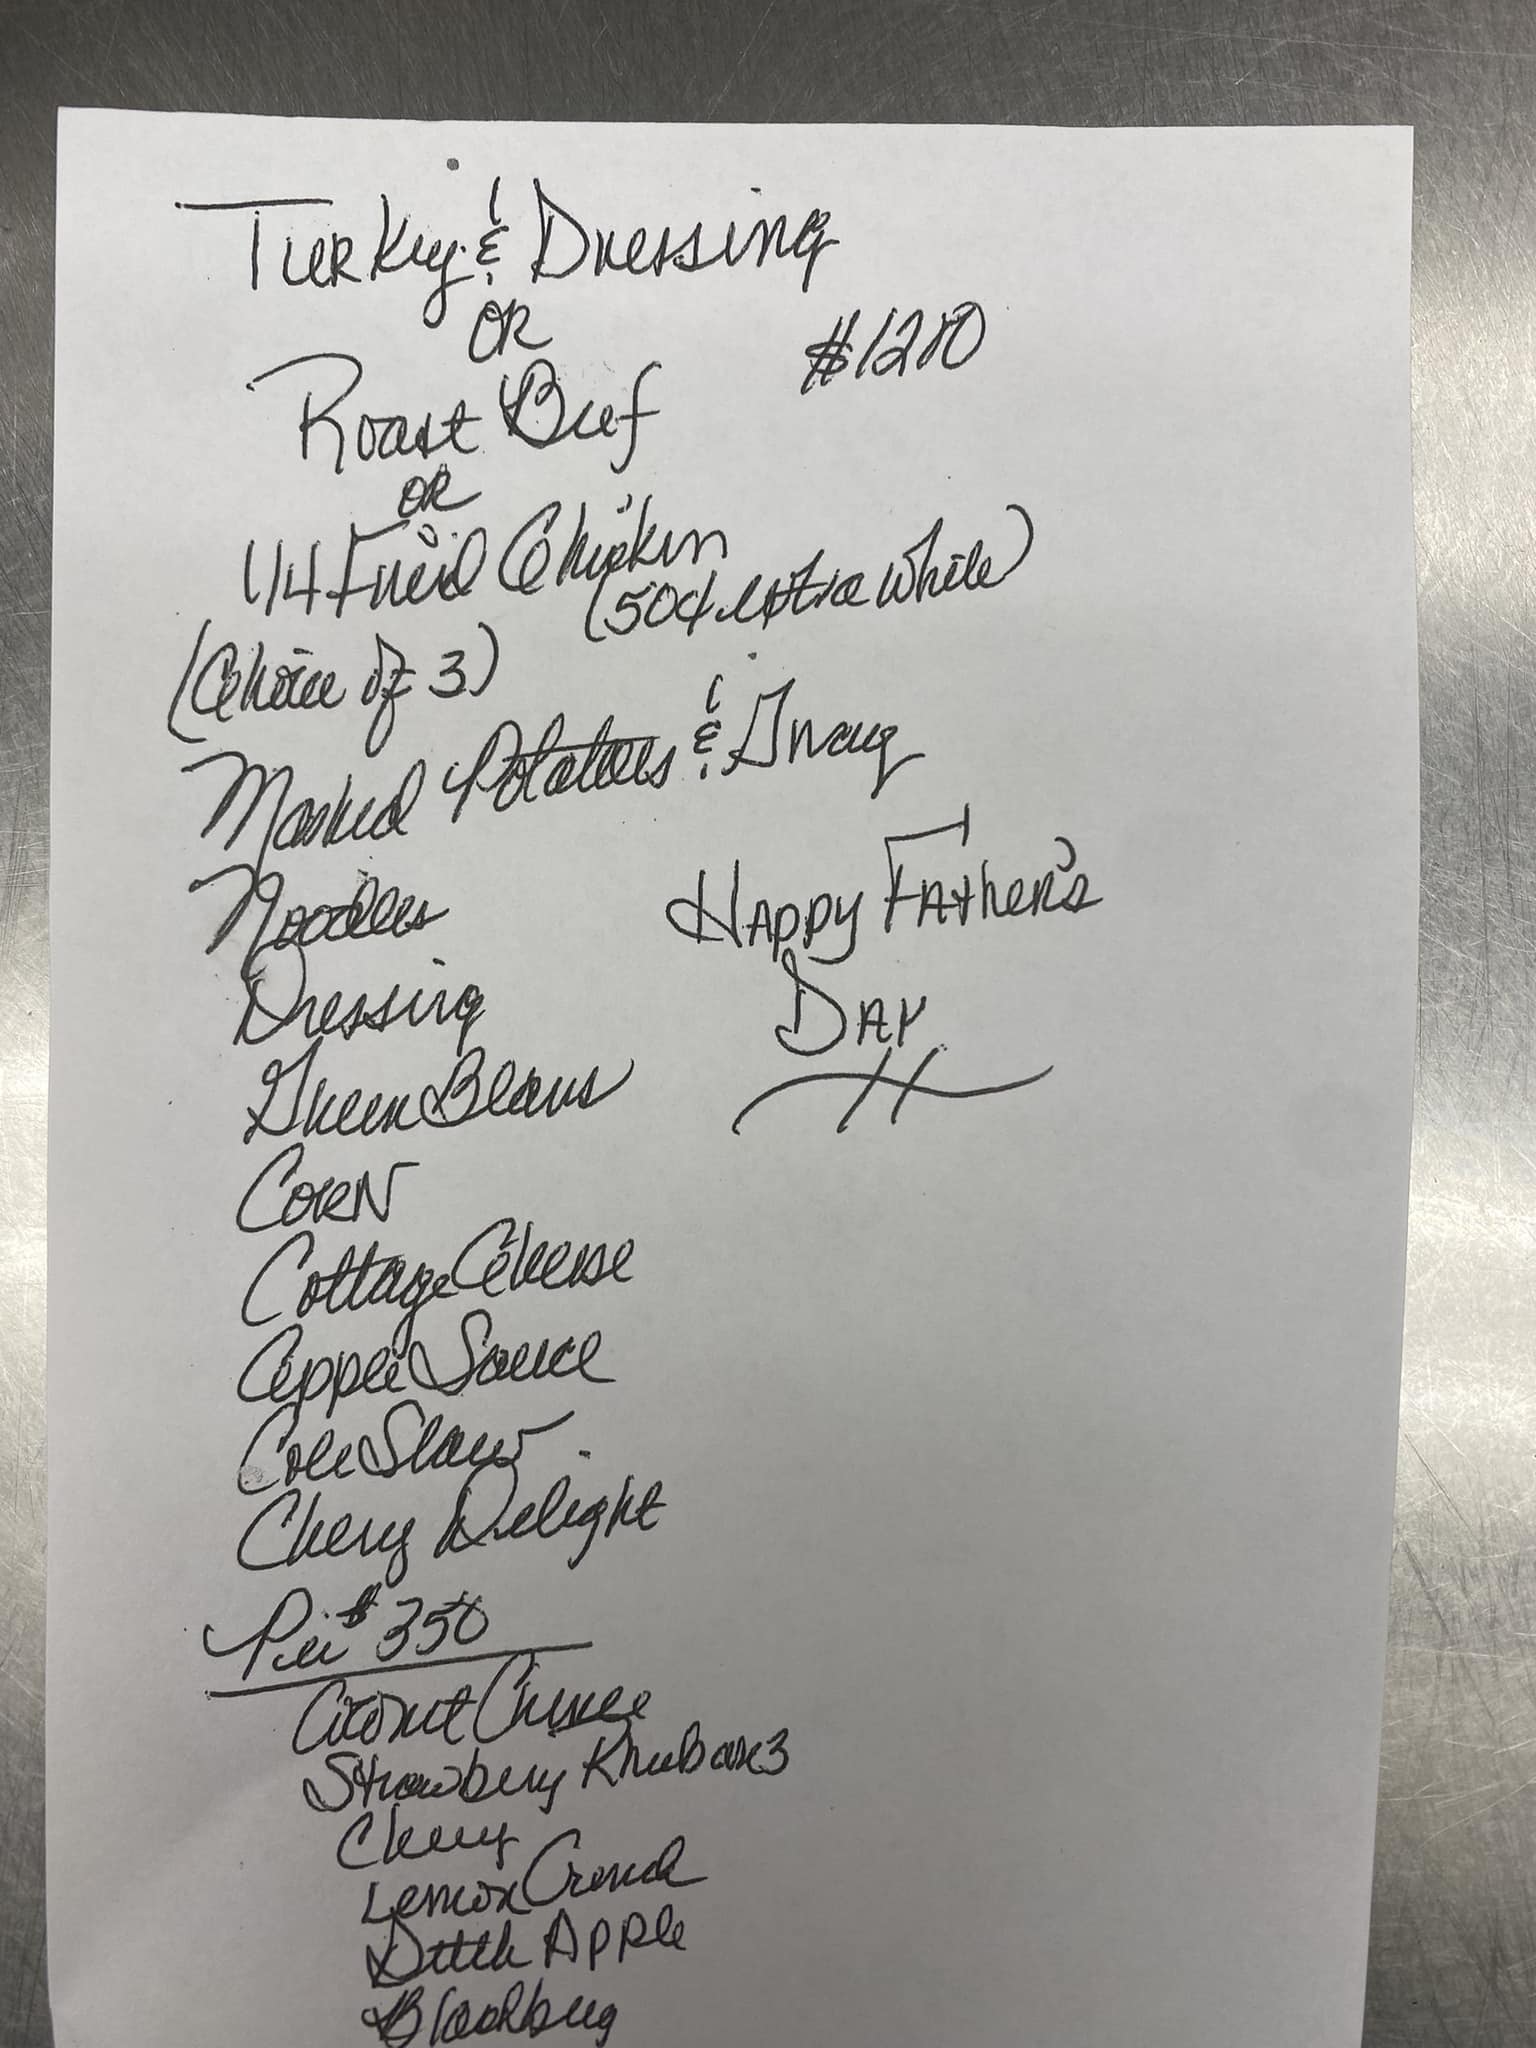 Turkey & Dressing
OR
$1200
Roast Beef
OR
1/4 Fried Chicken
(50¢ extra white)
(Choice of 3)
Mashed Potatoes & Gravy
Noodles
Happy Father's
Day
Dressing
Green Beans
Corn
Cottage Cheese
Apple Sauce
Cole Slaw
Cherry Delight
Pie $350
Coconut Creme
Strawberry Rhubarb
Cherry
Lemon Crunch
Dutch Apple
Blackberry